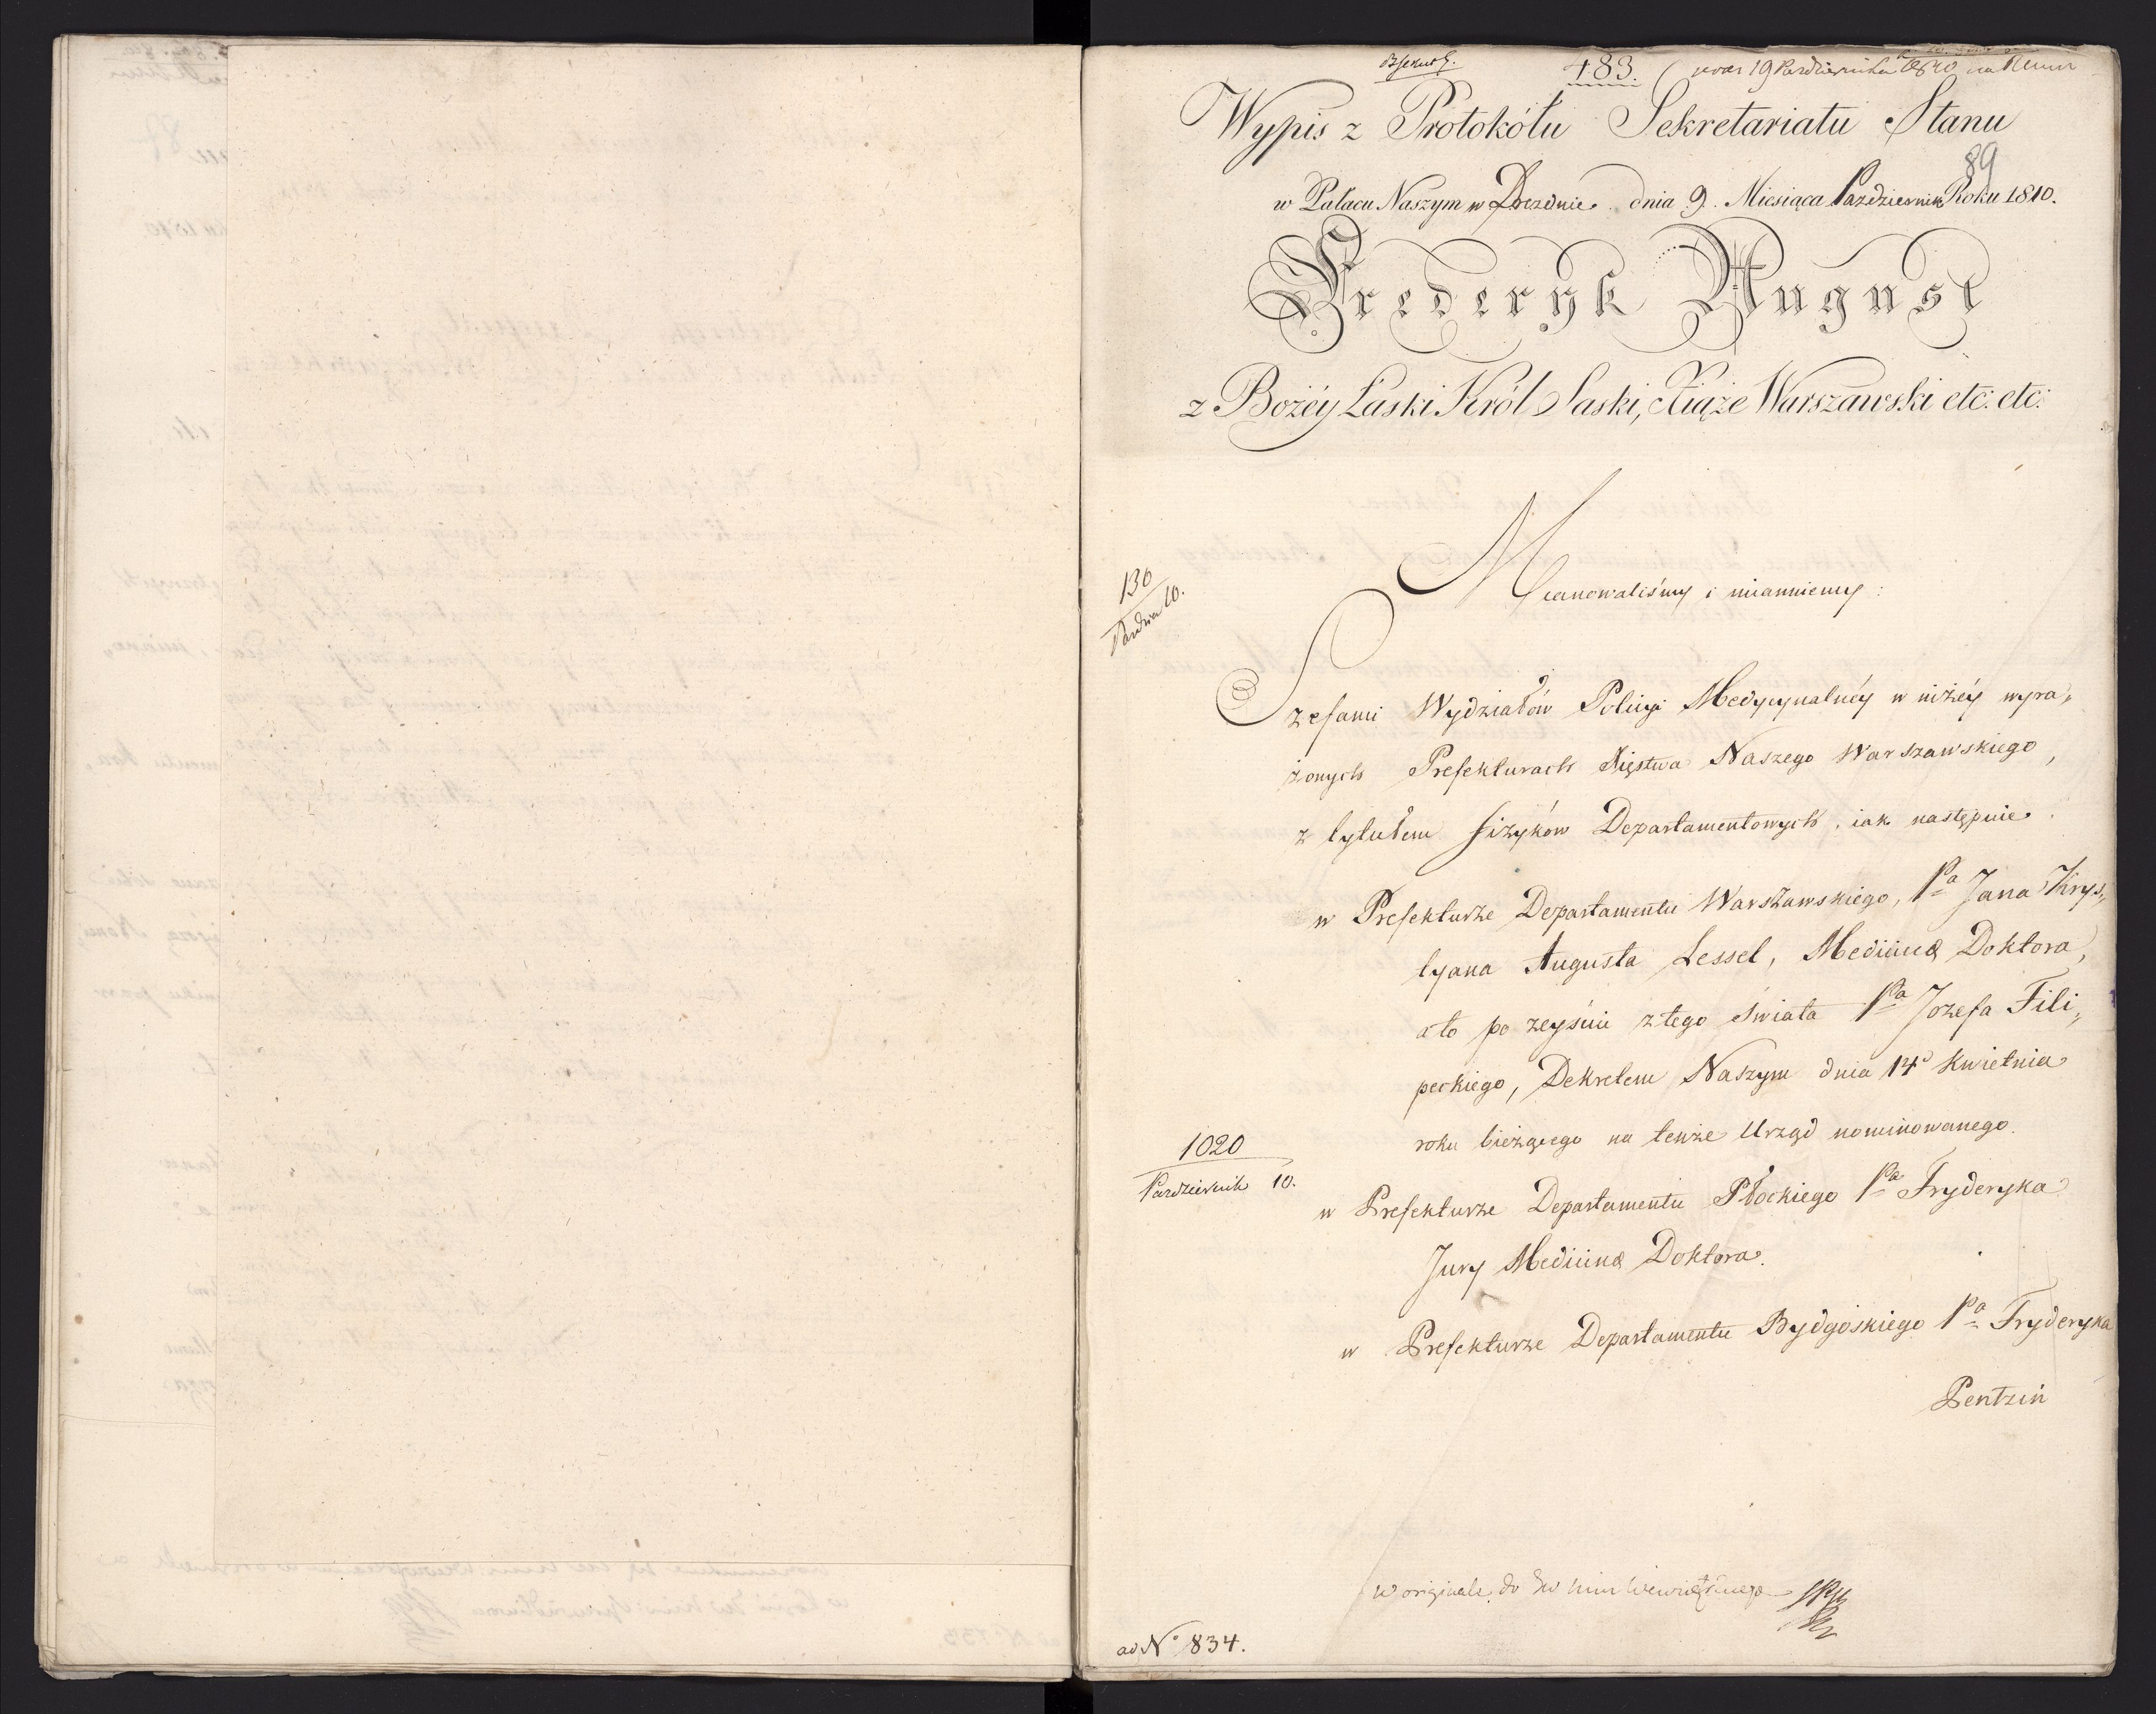 483.
19 Października 1810
Wypis z Protokółu Sekretariatu Stanu
89
w Pałacu Naszym w Dreznie dnia 9. Miesiąca Październik Roku 1810.
Frederyk August
z Bożéy Łaski Król Saski, Xiąże Warszawski etc: etc:
130
Paźdz: 10.
Mianowaliśmy i mianuiemy:
Szefami Wydziałów Policyi Medycynalnéy w niżéy wyra„
żonych Prefekturach Xięstwa Naszego Warszawskiego,
z tytułem fizyków Departamentowych, iak następuie.
w Prefekturze Departamentu Warszawskiego, Pa Jana Krys„
tyana Augusta Lessel, Medicinæ Doktora,
a to po zeyściu z tego świata Pa Jozefa Fili„
peckiego, Dekretem Naszym dnia 14 Kwietnia
roku bieżącego na tenże Urząd nominowanego.
1020
Październik 10.
w Prefekturze Departamentu Płockiego Pa Fryderyka
Jury Medicinæ Doktora.
w Prefekturze Departamentu Bydgoskiego Pa Fryderyka
Pentzin
w originale do Min Wewnętrznego
ad No 834.